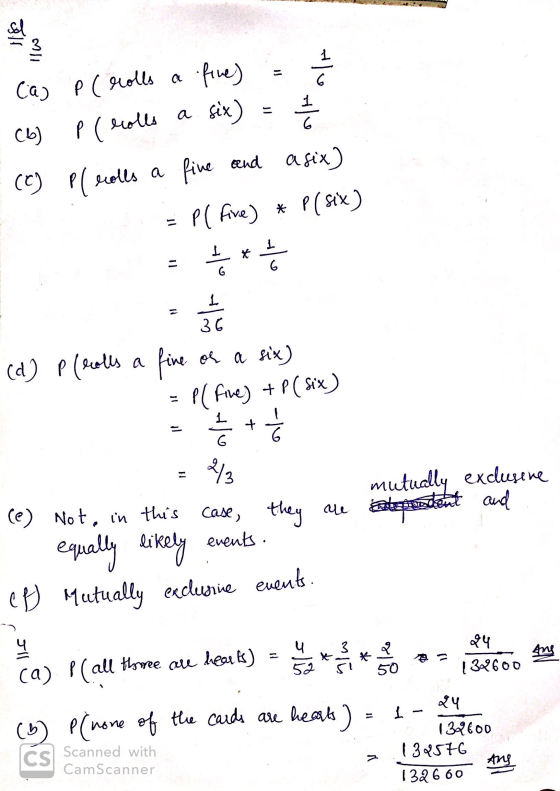 Sol
3
(a) P (rolls a five) = 1/6
(b) P (rolls a six) = 1/6
(c) P( rolls a five and a six)
= P( five) * P(six)
= 1/6 * 1/6
= 1/36
(d) P (rolls a five or a six)
= P( five) + P( six)
= 1/6 + 1/6
= 2/3
(e) Not, in this case, they are mutually exclusive and
equally likely events.
(f) Mutually exclusive events.
4
(a) P(all three are hearts) = 4/52 * 3/51 * 2/50 = 24/132600 Ans
(b) P(none of the cards are hearts) = 1 - 24/132600
= 132576/132600 Ans
CS Scanned with
CamScanner